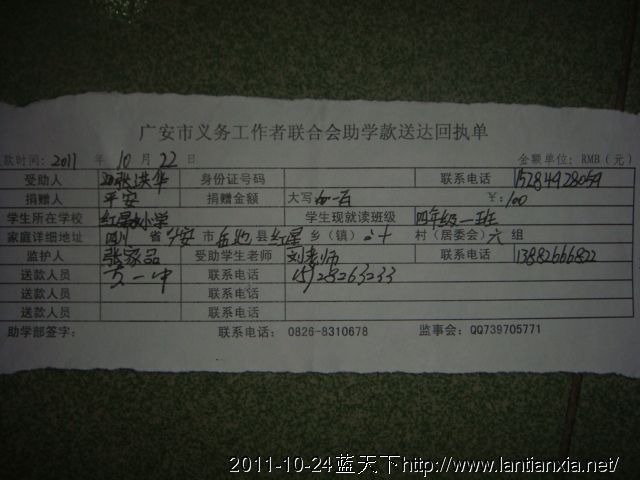 广安市义务工作者联合会助学款送达回执单
款时间: 2011 年 10 月 22 日 金额单位: RMB (元)
受助人 张洪华 身份证号码 联系电话 15284928059
捐赠人 平安 捐赠金额 大写 一百 ¥: 100
学生所在学校 红星小学 学生现就读班级 四年级一班
家庭详细地址 四川 省 广安 市 岳池 县 红星 乡 (镇) 村 (居委会) 六 组
监护人 受助学生老师 刘老师 联系电话 13882666822
送款人员 联系电话 15928263233
送款人员 联系电话
送款人员 联系电话
助学部签字: 联系电话: 0826-8310678 监事会: QQ739705771
2011-10-24蓝天下http://www.lantianxia.net/